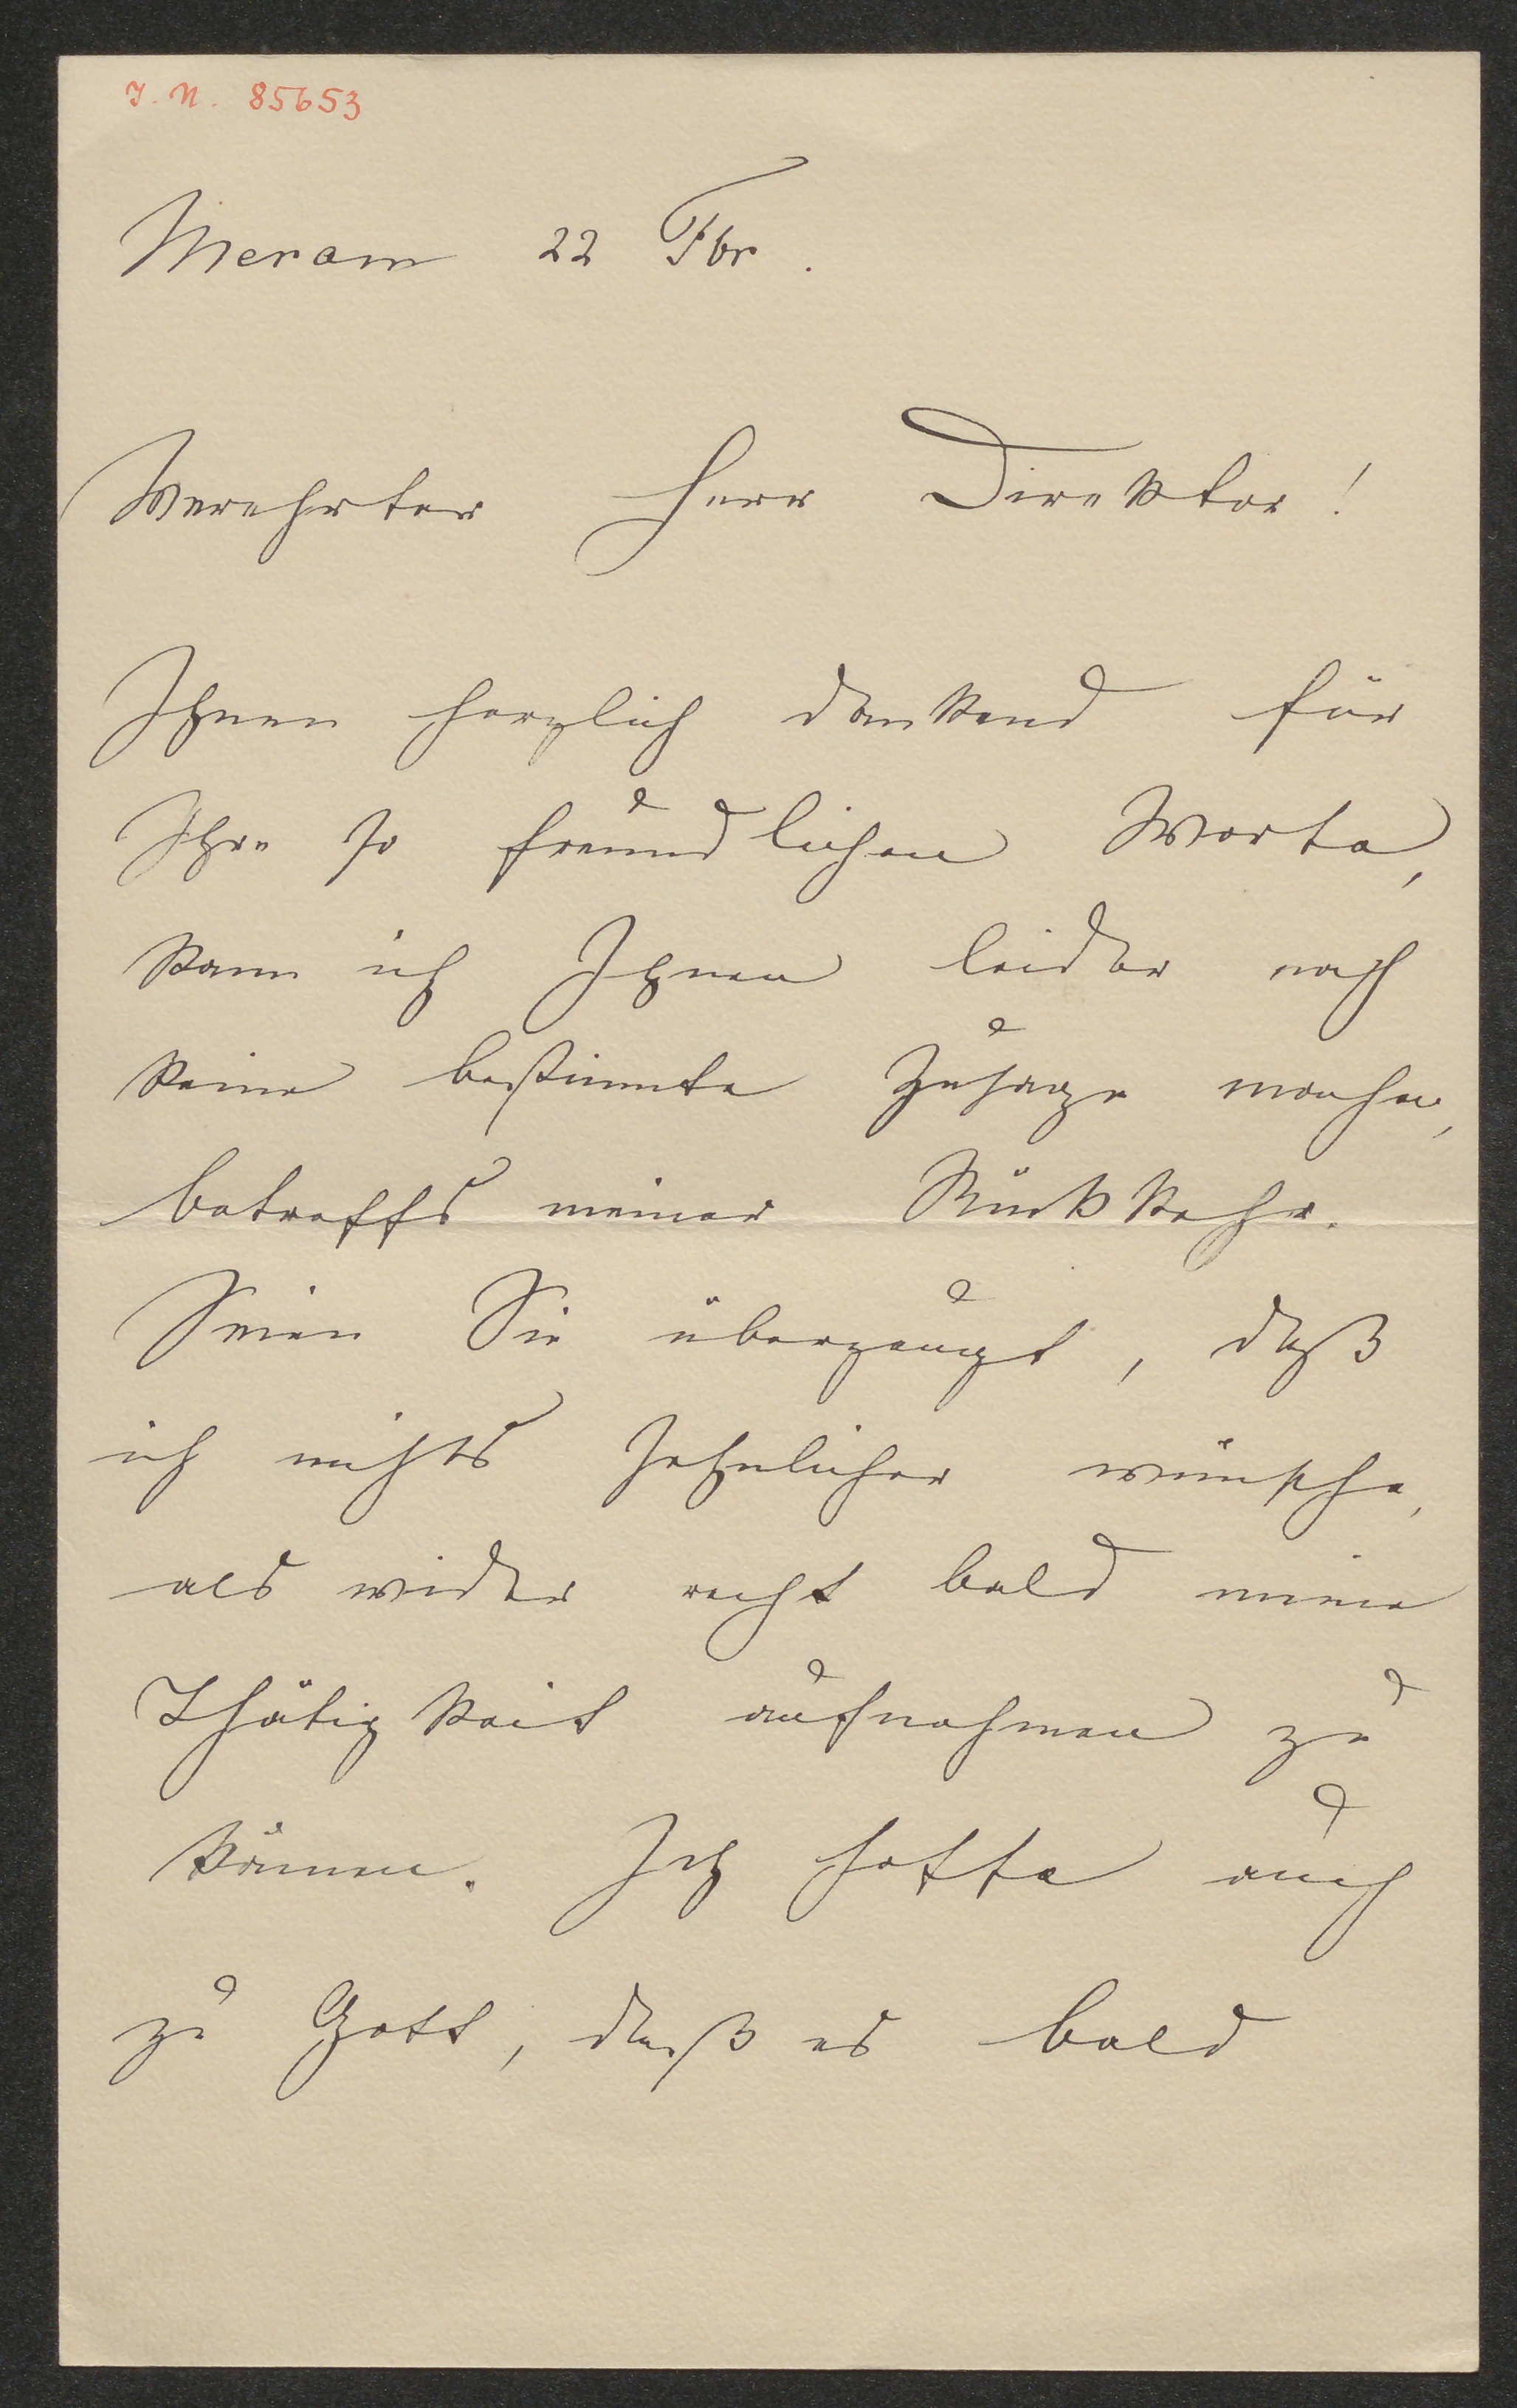 I. N. 85653
Meran 22 Fbr.
Verehrter Herr Direktor!
Ihnen herzlich dankend für
Ihre so freundlichen Worte,
kann ich Ihnen leider noch
keine bestimmte Zusage machen,
betreffs meiner Rückkehr.
Seien Sie überzeugt, daß
ich nichts sehnlicher wünsche,
als wieder recht bald meine
Thätigkeit aufnehmen zu
können. Ich hoffe auch
zu Gott, daß es bald